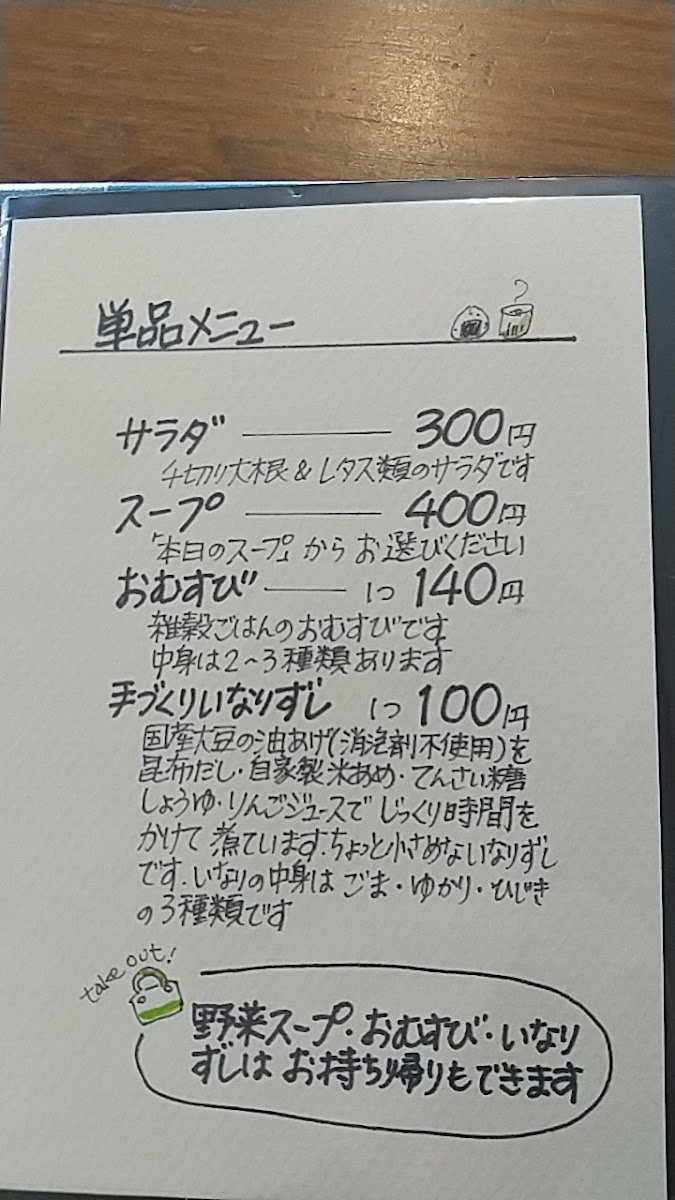 単品メニュー
サラダ 300円
千切り大根&レタス類のサラダです
スープ 400円
「本日のスープ」からお選びください
おむすび 1つ 140円
雑穀ごはんのおむすびです
中身は2~3種類あります
手づくりいなりずし 1つ 100円
国産大豆の油あげ(消泡剤不使用)を
昆布だし・自家製米あめ・てんさい糖
しょうゆ・りんごジュースでじっくり時間を
かけて煮ています.ちょっと小さめないなりずし
です.いなりの中身はごま・ゆかり・ひじき
の3種類です
take out!
野菜スープ・おむすび・いなり
ずしはお持ち帰りもできます